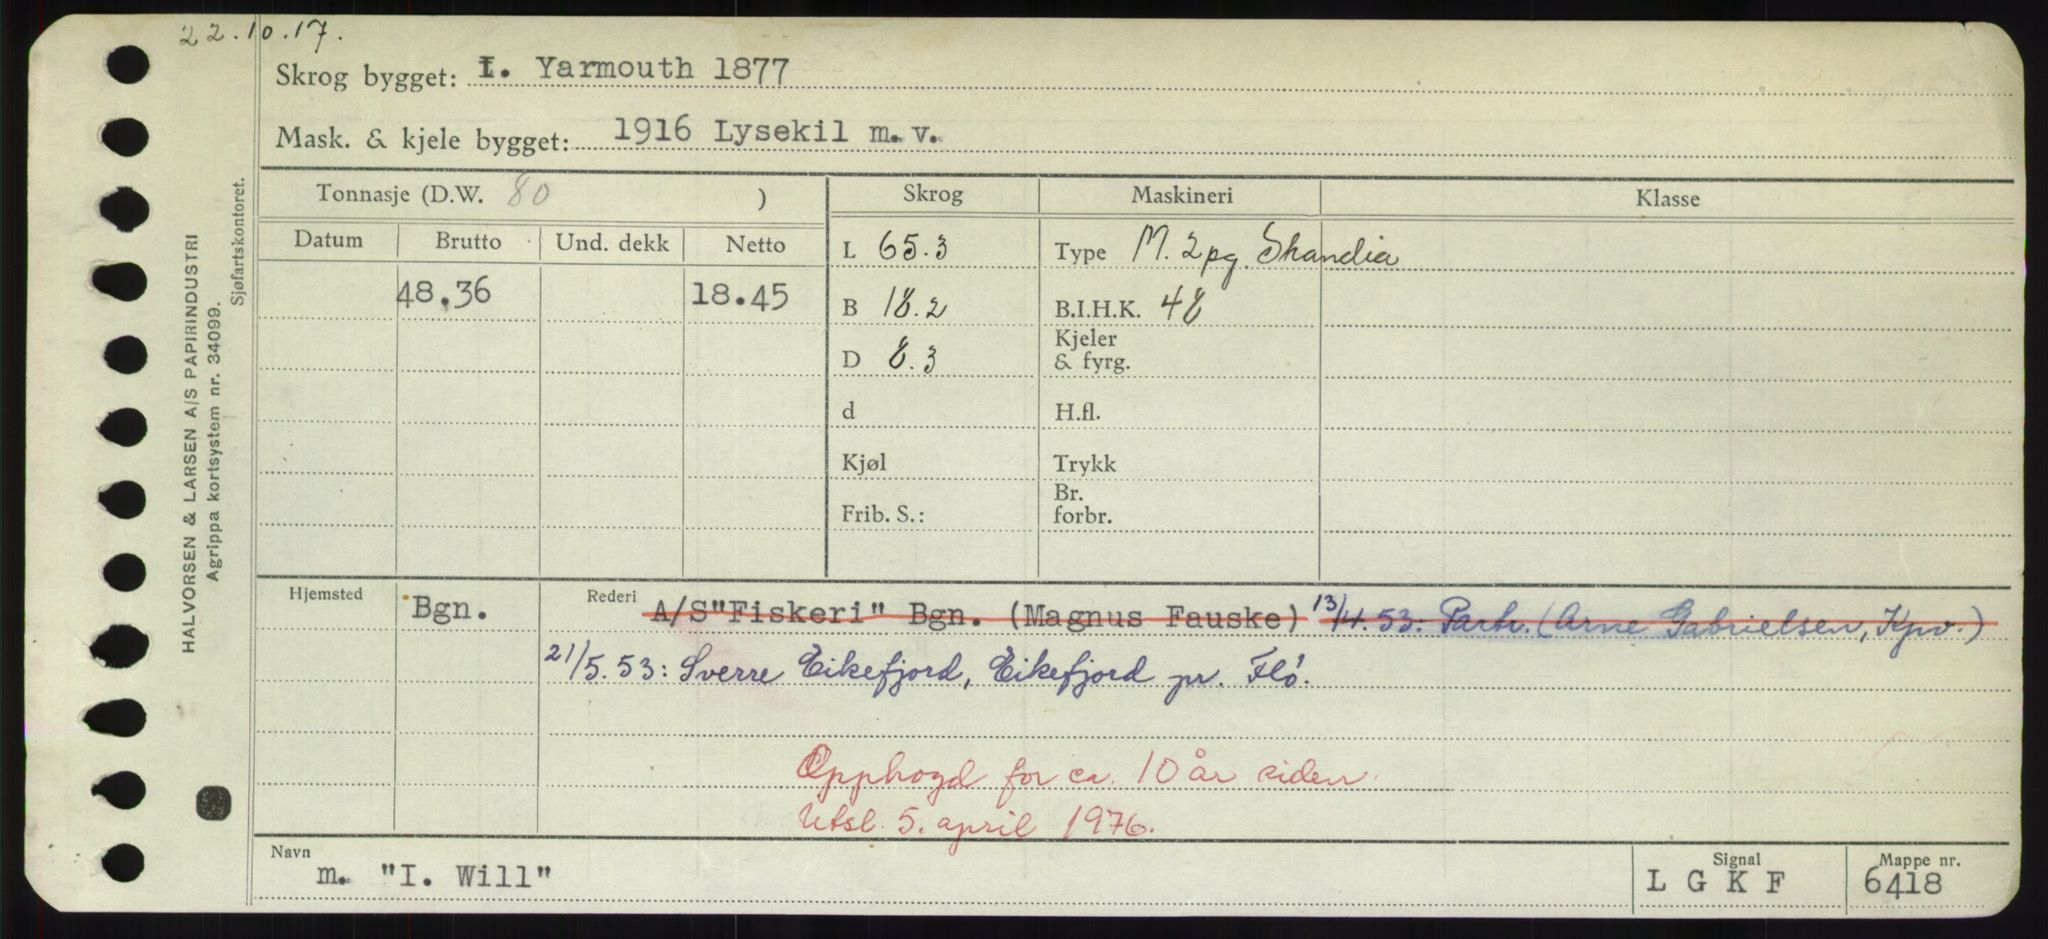 22.10.17.
Skrog bygget: I. Yarmouth 1877
Mask. & kjele bygget: 1916 Lysekil m.v.
Tonnasje (D.W. 80 )
Skrog
Maskineri
Klasse
Datum
Brutto
Und. dekk
Netto
L 65.3
Type M. 2 pg. Skandia
48.36
18.45
B 18.2
B.I.H.K. 48
D 8.3
Kjeler
& fyrg.
d
H.fl.
Kjøl
Trykk
Frib. S.:
Br.
forbr.
Hjemsted
Bgn.
Rederi
A/S"Fiskeri" Bgn. (Magnus Fauske) 13/4.53: Partr. (Arne Gabrielsen, Kpv.)
21/5.53: Sverre Eikefjord, Eikefjord pr. Flo.
Opphogd for ca. 10 år siden.
Utsl. 5. april 1976.
Navn
m. "I. Will"
Signal
L G K F
Mappe nr.
6418
HALVORSEN & LARSEN A/S PAPIRINDUSTRI
Agrippa kortsystem nr. 34099.
Sjøfartskontoret.